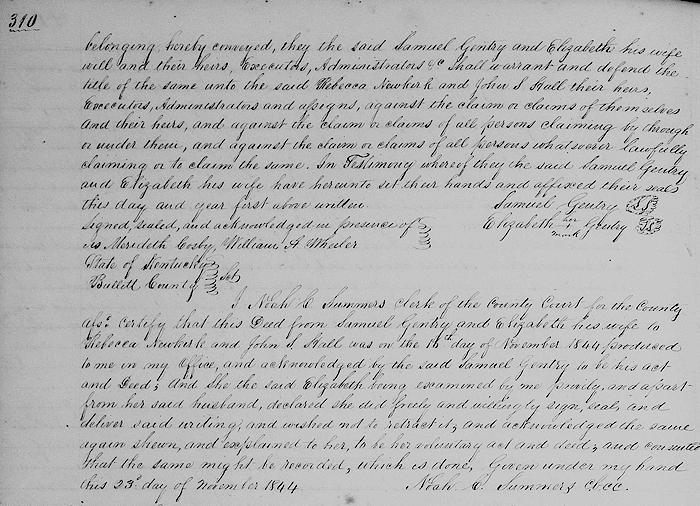 310
belonging, hereby conveyed, they the said Samuel Gentry and Elizabeth his wife
will and their heirs, Executors, Administrators &c shall warrant and defend the
title of the same unto the said Rebecca Newkirk and John S Hall their heirs,
Executors, Administrators and assigns, against the claim or claims of themselves
and their heirs, and against the claim or claims of all persons claiming by through
or under them, and against the claim or claims of all persons whatsoever lawfully
claiming or to claim the same. In Testimony whereof they the said Samuel Gentry
and Elizabeth his wife have hereunto set their hands and affixed their seals
this day and year first above written. Samuel Gentry
Signed, sealed, and acknowledged in presence of Elizabeth her + mark Gentry
us Merideth Cosby, William A Wheeler
State of Kentucky
Bullitt County Sct
I Noah C Summers Clerk of the County Court for the County
afsd. certify that this Deed from Samuel Gentry and Elizabeth his wife to
Rebecca Newkirk and John S Hall was on the 11th day of November 1844, produced
to me in my Office, and acknowledged by the said Samuel Gentry to be his act
and Deed; And She the said Elizabeth being examined by me privily and apart
from her said husband, declared she did freely and willingly sign, seal, and
deliver said writing, and wished not to retract it, and acknowledged the same
again shewn, and explained to her, to be her voluntary act and deed, and consented
that the same might be recorded, which is done. Given under my hand
this 23d day of November 1844 Noah C. Summers C.B.C.C.